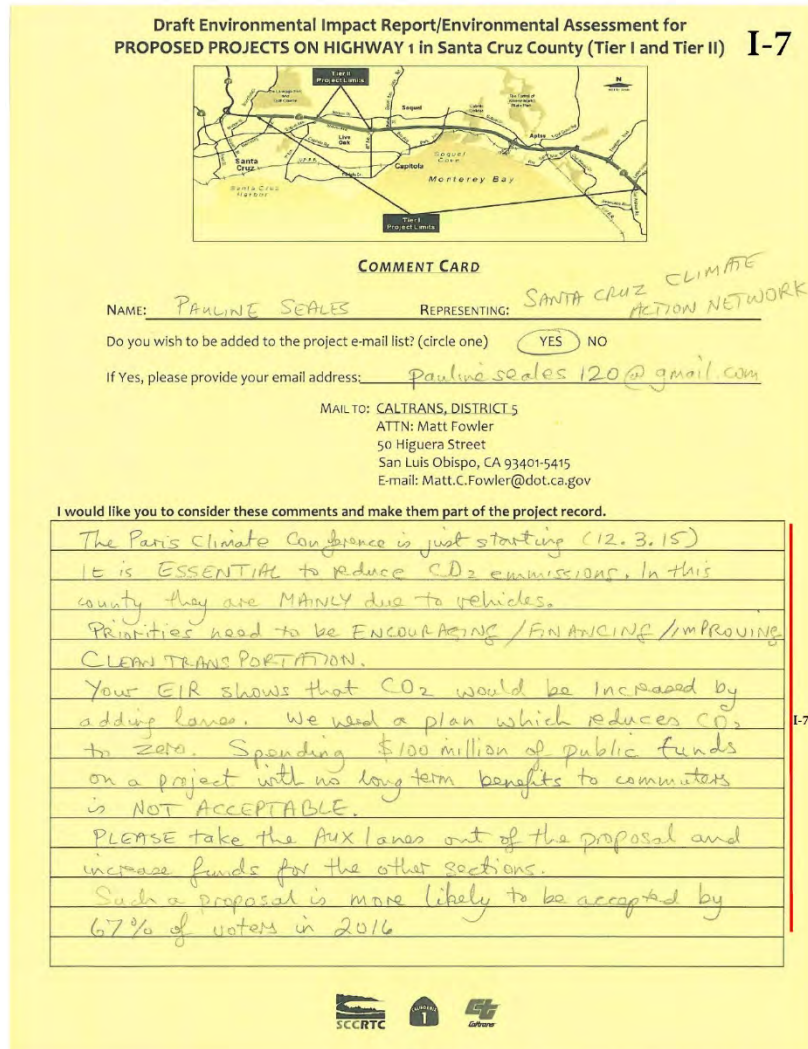 Draft Environmental Impact Report/Environmental Assessment for
PROPOSED PROJECTS ON HIGHWAY 1 in Santa Cruz County (Tier I and Tier II)
I-7
Tier II
Project Limits
N
Soquel
Live
Oak
Aptos
Santa
Cruz
Capitola
Soquel
Cove
Monterey Bay
Santa Cruz
Harbor
Tier I
Project Limits
COMMENT CARD
NAME: PAULINE SEALES REPRESENTING: SANTA CRUZ CLIMATE
ACTION NETWORK
Do you wish to be added to the project e-mail list? (circle one) YES NO
If Yes, please provide your email address: paulineseales120@gmail.com
MAIL TO: CALTRANS, DISTRICT 5
ATTN: Matt Fowler
50 Higuera Street
San Luis Obispo, CA 93401-5415
E-mail: Matt.C.Fowler@dot.ca.gov
I would like you to consider these comments and make them part of the project record.
The Paris Climate Conference is just starting (12.3.15)
It is ESSENTIAL to reduce CO2 emmissions. In this
county they are MAINLY due to vehicles.
PRIORITIES need to be ENCOURAGING/FINANCING/IMPROVING
CLEAN TRANSPORTATION.
Your EIR shows that CO2 would be increased by
adding lanes. We need a plan which reduces CO2
to zero. Spending $100 million of public funds
on a project with no long term benefits to commuters
is NOT ACCEPTABLE.
PLEASE take the AUX lanes out of the proposal and
increase funds for the other sections.
Such a proposal is more likely to be accepted by
67% of voters in 2016
I-7
SCCRTC
CALIFORNIA
1
Caltrans